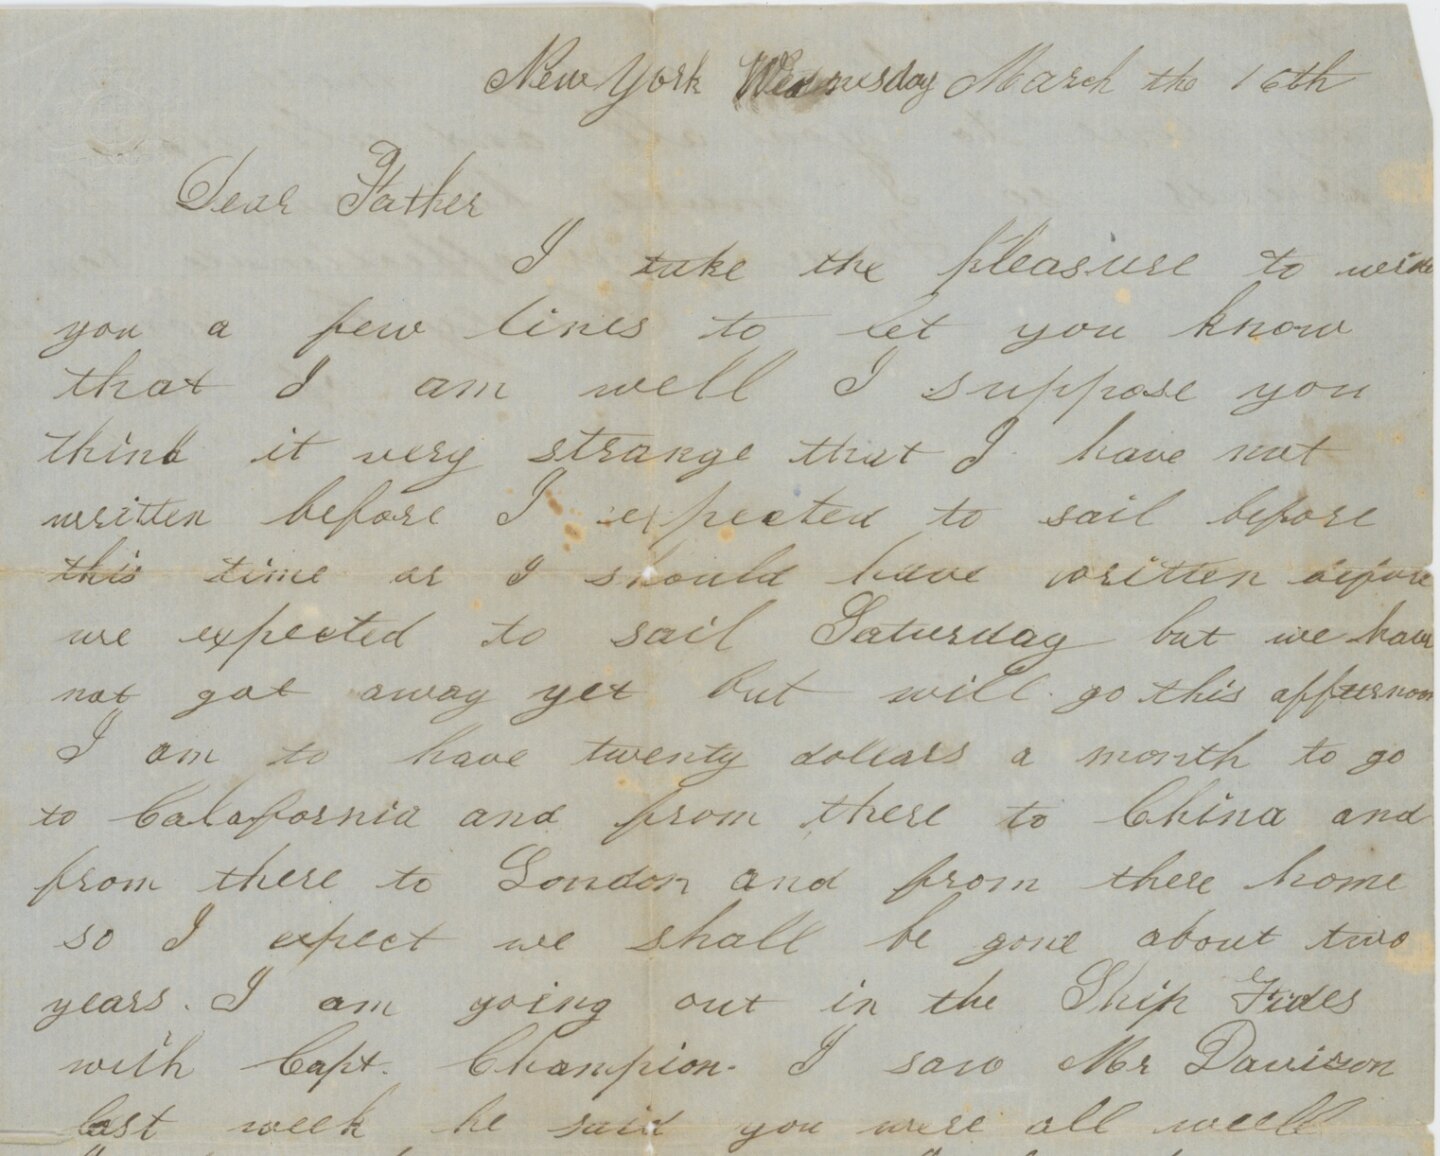 New York Wednesday March the 16th
Dear Father
I take the pleasure to write
you a few lines to let you know
that I am well I suppose you
think it very strange that I have not
written before I expected to sail before
this time or I should have written before
we expected to sail Saturday but we have
not got away yet but will go this affturnoon
I am to have twenty dollars a month to go
to Calafornia and from there to China and
from there to London and from there home
so I expect we shall be gone about two
years. I am going out in the Ship Fides
with Capt. Champion. I saw Mr Davison
last week he said you were all well